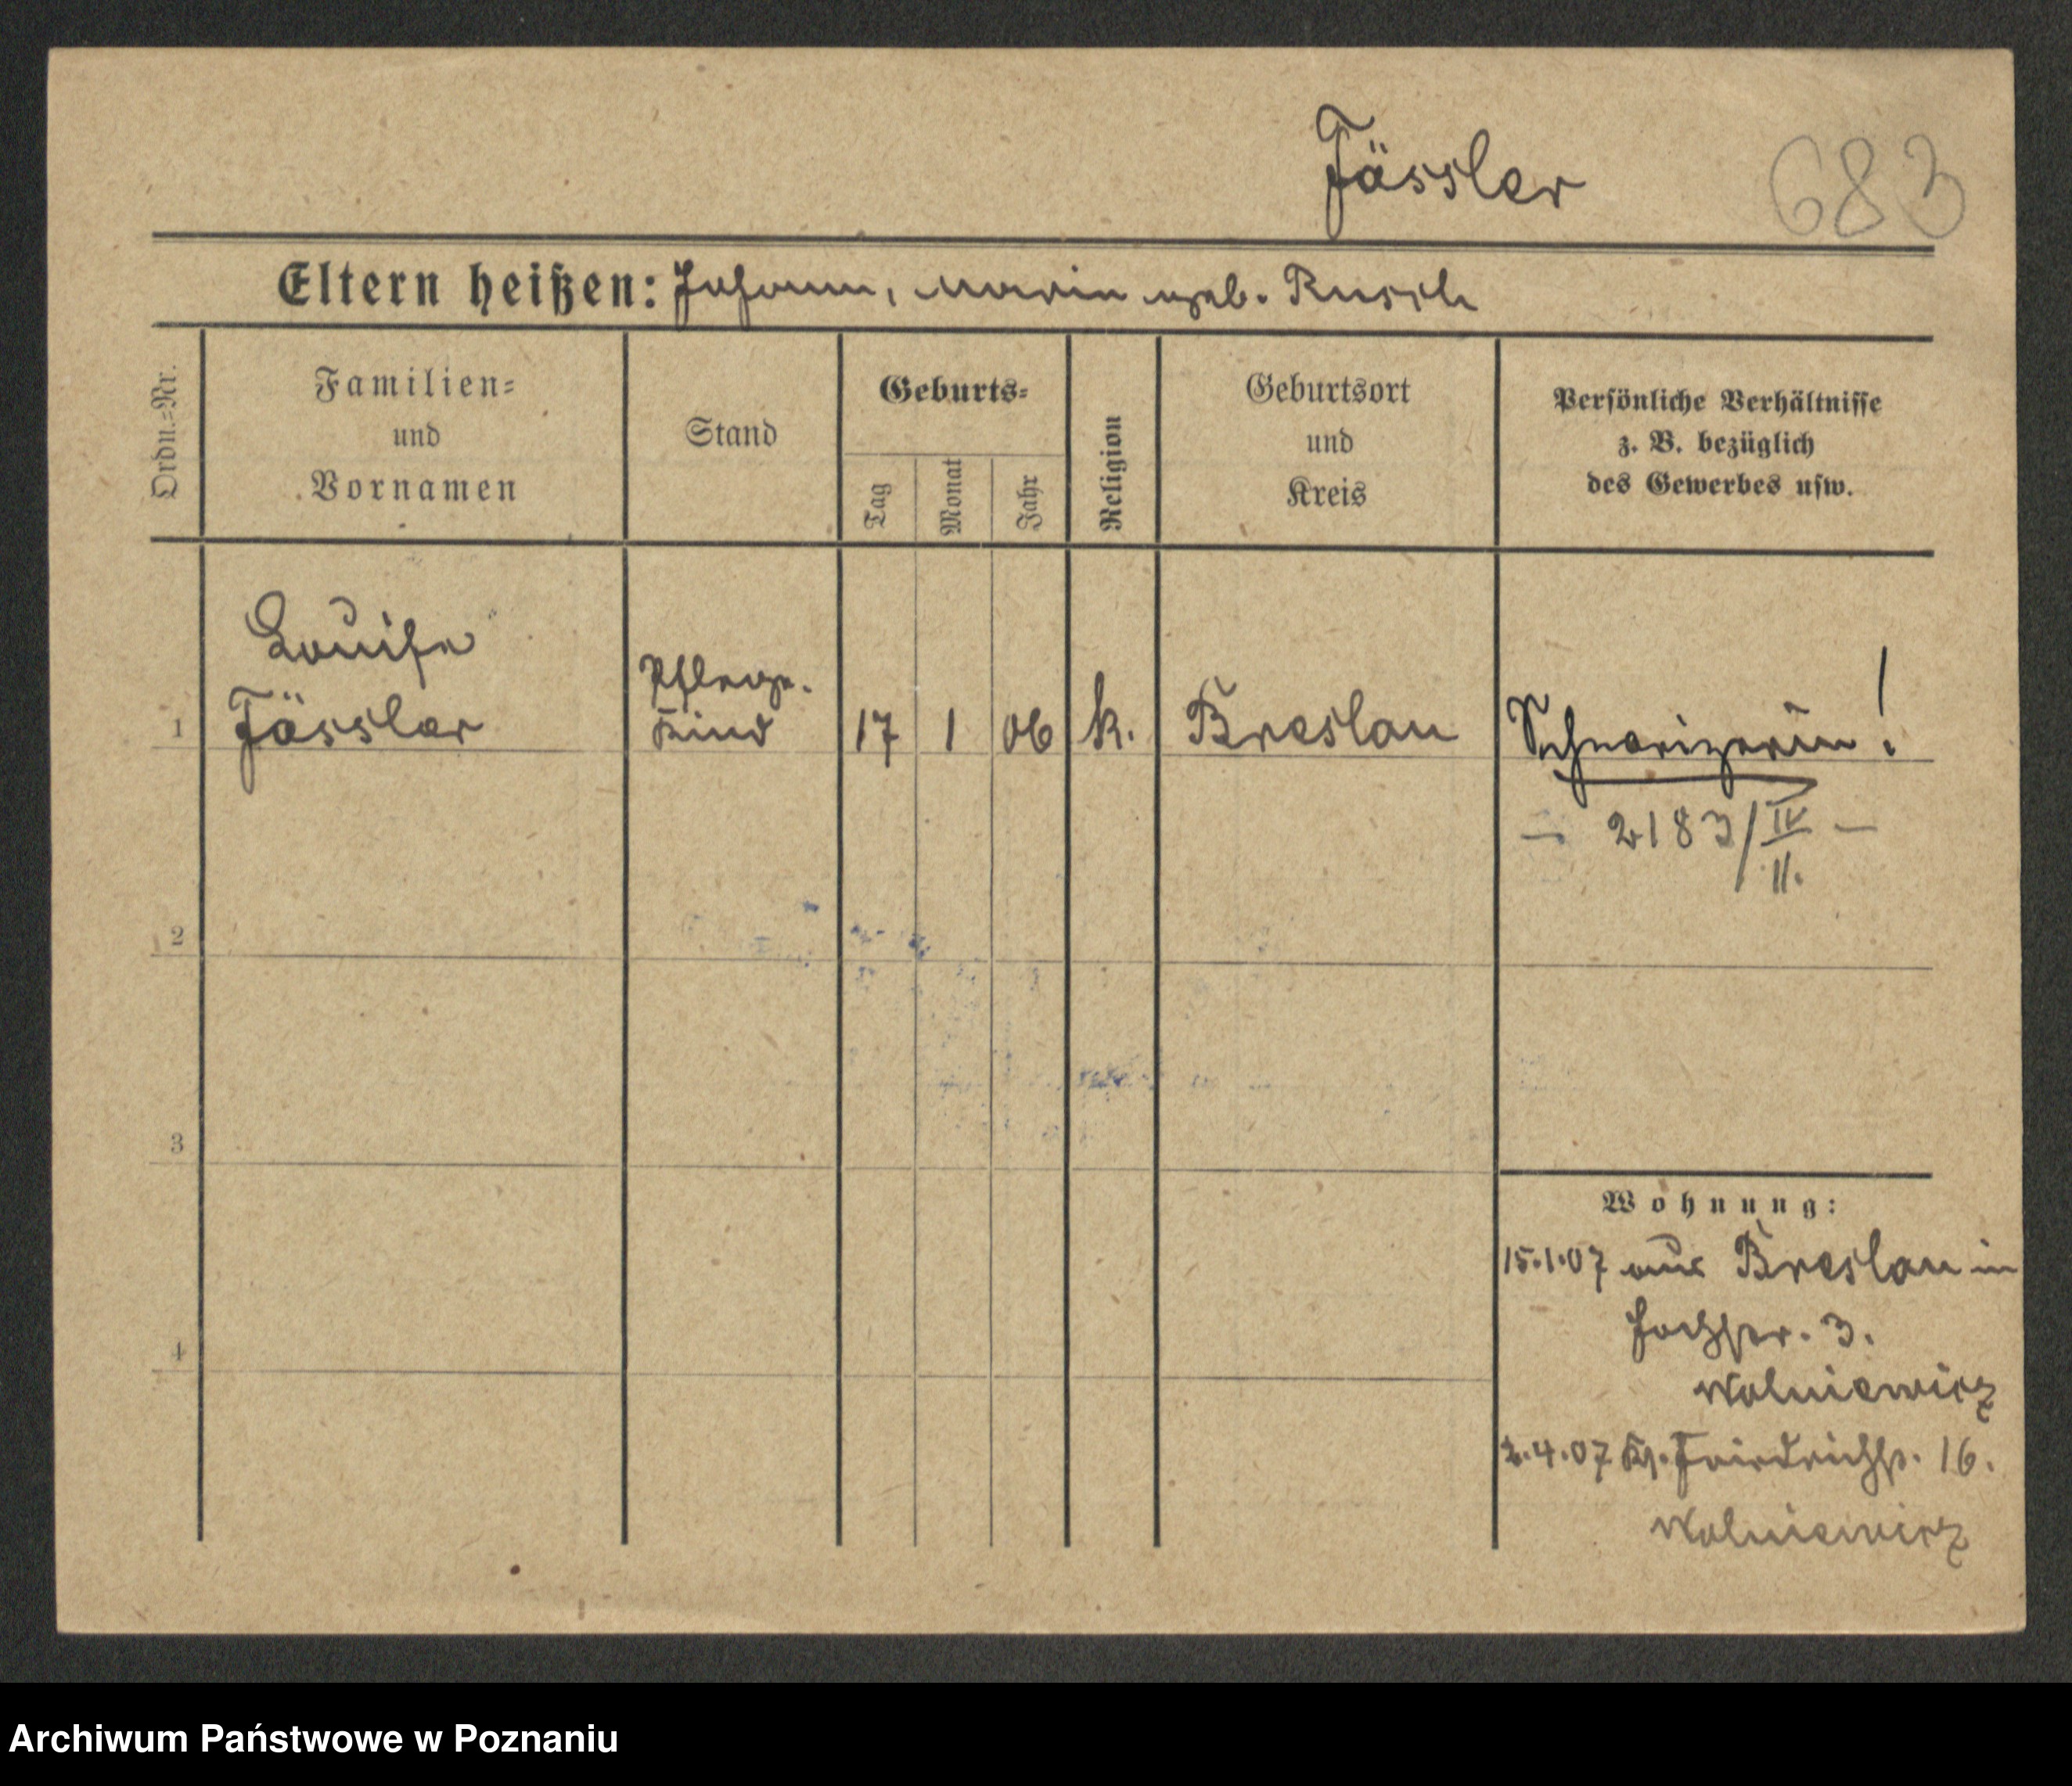 Fässler
683
Eltern heißen: Johann, Maria geb. Rusch
Ordn.=Nr.
Familien=
und
Vornamen
Stand
Geburts=
Tag
Monat
Jahr
Religion
Geburtsort
und
Kreis
Persönliche Verhältnisse
z. B. bezüglich
des Gewerbes usw.
1
Louise
Fässler
Pflege-
Kind
17
1
06
k.
Breslau
Schweizerin!
– 2183/IV –
II.
2
3
4
Wohnung:
15.1.07 aus Breslau in
3.
Wolniewicz
2.4.07 Kl. Friedrichstr. 16.
Wolniewicz
Archiwum Państwowe w Poznaniu